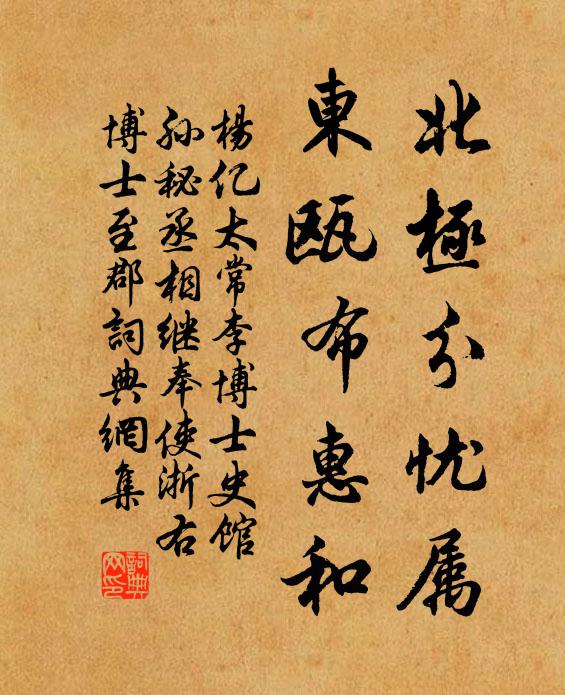 北極分忧属
東甌布惠和
楊亿太常李博士史馆
孙秘丞相继奉使浙右
博士至郡詞典網集
詞典
网印